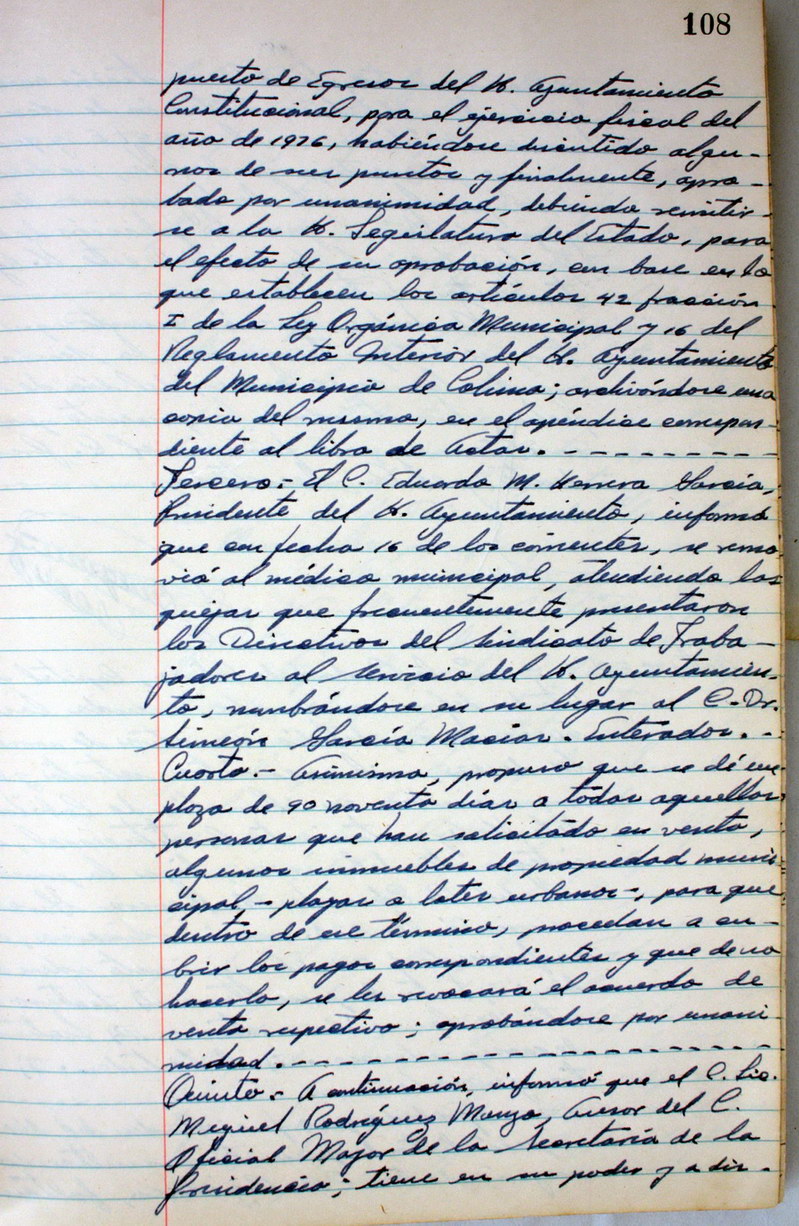 108
puesto de Egresos del H. Ayuntamiento
Constitucional, para el ejercicio fiscal del
año de 1976, habiéndose discutido algu-
nos de sus puntos y finalmente, apro-
bado por unanimidad, debiendo remitir-
se a la H. Legislatura del Estado, para
el efecto de su aprobación, con base en lo
que establecen los artículos 42 fracción
I de la Ley Orgánica Municipal y 16 del
Reglamento Interior del H. Ayuntamiento
del Municipio de Colima; archivándose una
copia del mismo, en el apéndice correspon-
diente al libro de Actas. - - - - - - - - -
Tercero.- El C. Eduardo M. Herrera García,
Presidente del H. Ayuntamiento, informó
que con fecha 16 de los corrientes, se remo-
vió al médico municipal, atendiendo las
quejas que frecuentemente presentaron
los Directivos del Sindicato de Traba-
jadores al servicio del H. Ayuntamien-
to, nombrándose en su lugar al C. Dr.
Simeón García Macías. Enterados. -
Cuarto.- Asimismo, propuso que se dé un
plazo de 90 noventa días a todas aquellas
personas que han solicitado en venta,
algunos inmuebles de propiedad muni-
cipal, - playas o lotes urbanos -, para que
dentro de ese término, procedan a cu-
brir los pagos correspondientes y que de no
hacerlo, se les revocará el acuerdo de
venta respectivo; aprobándose por unani-
midad. - - - - - - - - - - - - - - - - - - -
Quinto.- A continuación, informó que el C. Lic.
Miguel Rodríguez Asesor del C.
Oficial Mayor de la Secretaría de la
Presidencia; tiene en su poder y a dis-